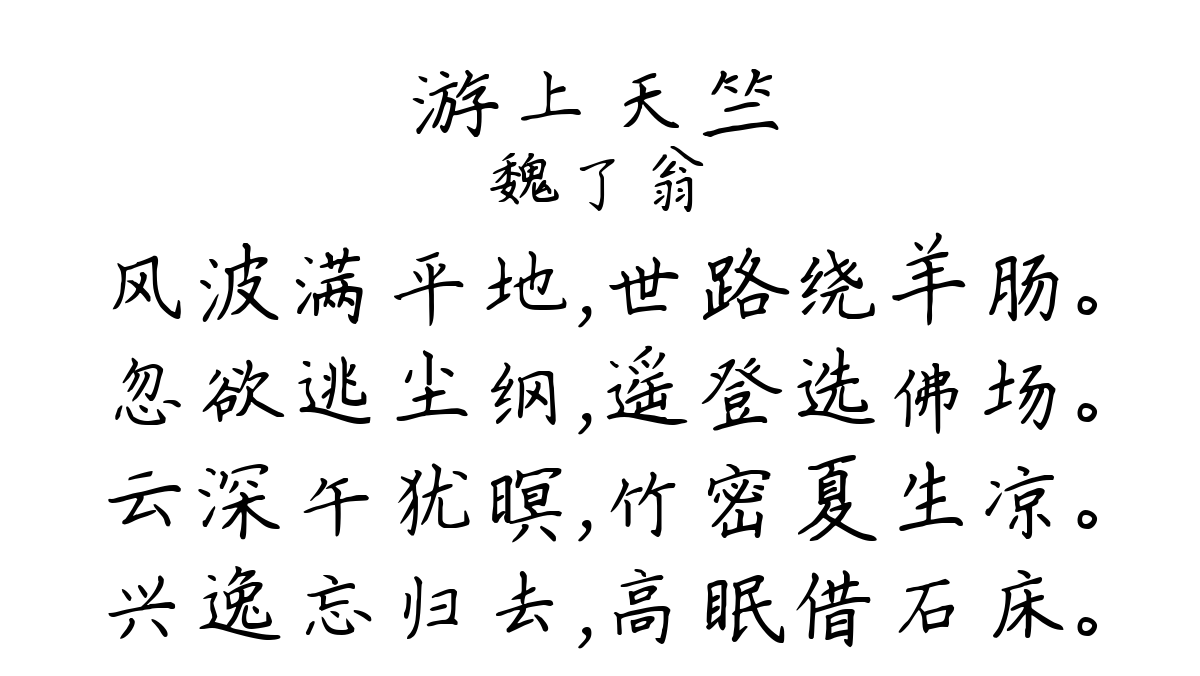 游上天竺
魏了翁
风波满平地,世路绕羊肠。
忽欲逃尘纲,遥登选佛场。
云深午犹暝,竹密夏生凉。
兴逸忘归去,高眠借石床。